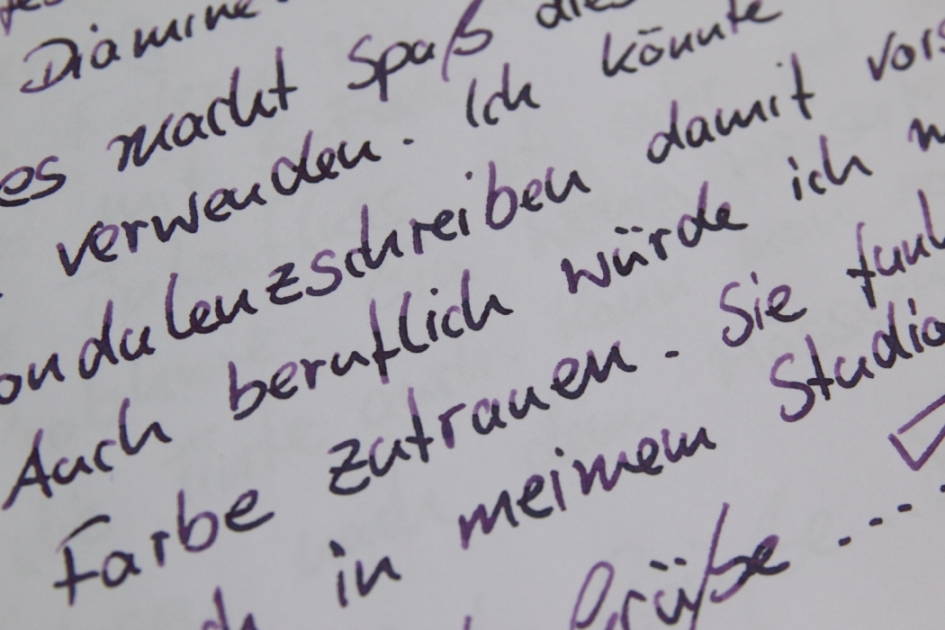 Diamine
es macht Spaß
verwenden. Ich könnte
ondulenzschreiben damit vors
Auch beruflich würde ich
Farbe zutrauen. Sie funk
in meinem Studio
Grüße ....